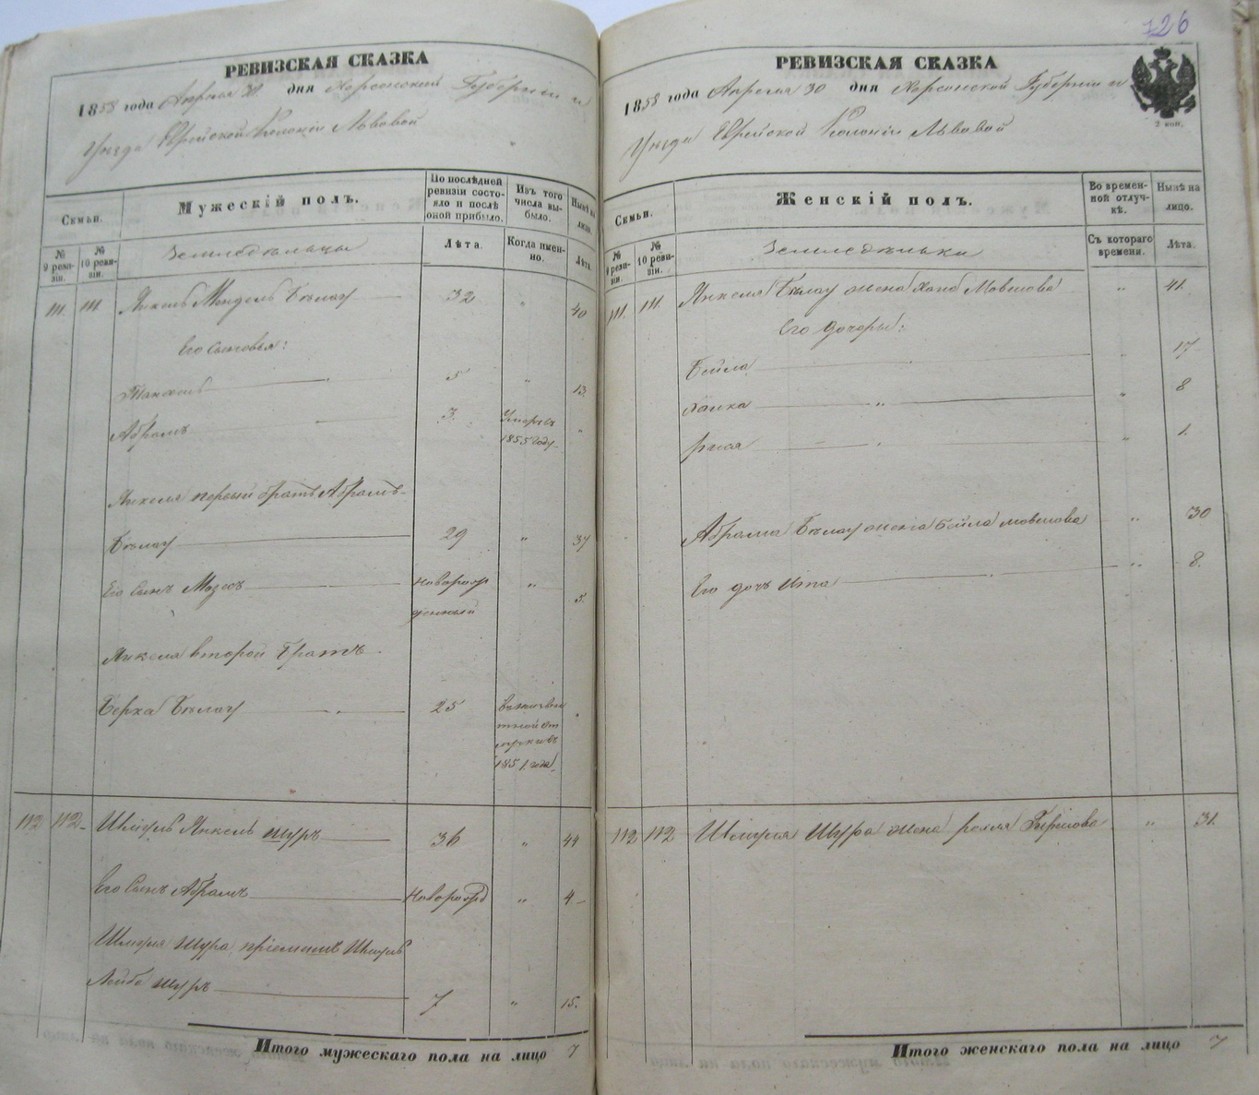 РЕВИЗСКАЯ СКАЗКА
1858 года Апреля 30 дня Херсонской Губернии и
Уезда Еврейской Колонии Львовой
Семьи.
Мужескій полъ.
По послѣдней ревизіи состояло и послѣ оной прибыло.
Изъ того числа выбыло.
Нынѣ на лицо.
№ 9 ревизіи.
№ 10 ревизіи.
Земледѣльцы
Лѣта.
Когда именно.
Лѣта.
111. 111. Янкель Мендель Бѣлоу 32 40
Его сыновья:
Танхомъ 5 „ 13
Абрамъ 3. Умеръ въ „
1855 году.
Янкеля первый братъ Абрамъ
Бѣлоу 29 „ 37
Его сынъ Мозес новорож „ 5.
денный
Янкеля второй братъ
Берка Бѣлоу „ 25 „
1851 года.
112 112 Шмуль Янкель Шуръ 36 „ 44
Его сынъ Абрамъ Новорожд „ 4
Шмуля Шура пріемышъ Шмуль
Лейба Шуръ 7 „ 15.
Итого мужескаго пола на лицо 7
126
РЕВИЗСКАЯ СКАЗКА
1858 года Апреля 30 дня Херсонской Губернии и
Уезда Еврейской Колонии Львовой
2 коп.
Семьи.
Женскій полъ.
Во временной отлучкѣ.
Нынѣ на лицо.
№ 9 ревизіи.
№ 10 ревизіи.
Земледѣльки
Съ котораго времени.
Лѣта.
111. 111. Янкеля Бѣлоу жена Хана Мовшова „ 41.
Его дочеры:
Бейла „ 17
Ханка „ „ 8
„ „ 1.
Абрама Бѣлоу жена Бейла Мовшова „ 30
Его дочь Ита „ 8.
112 112 Шмуля Шура жена Рейля Гиршова „ 31.
Итого женскаго пола на лицо 7